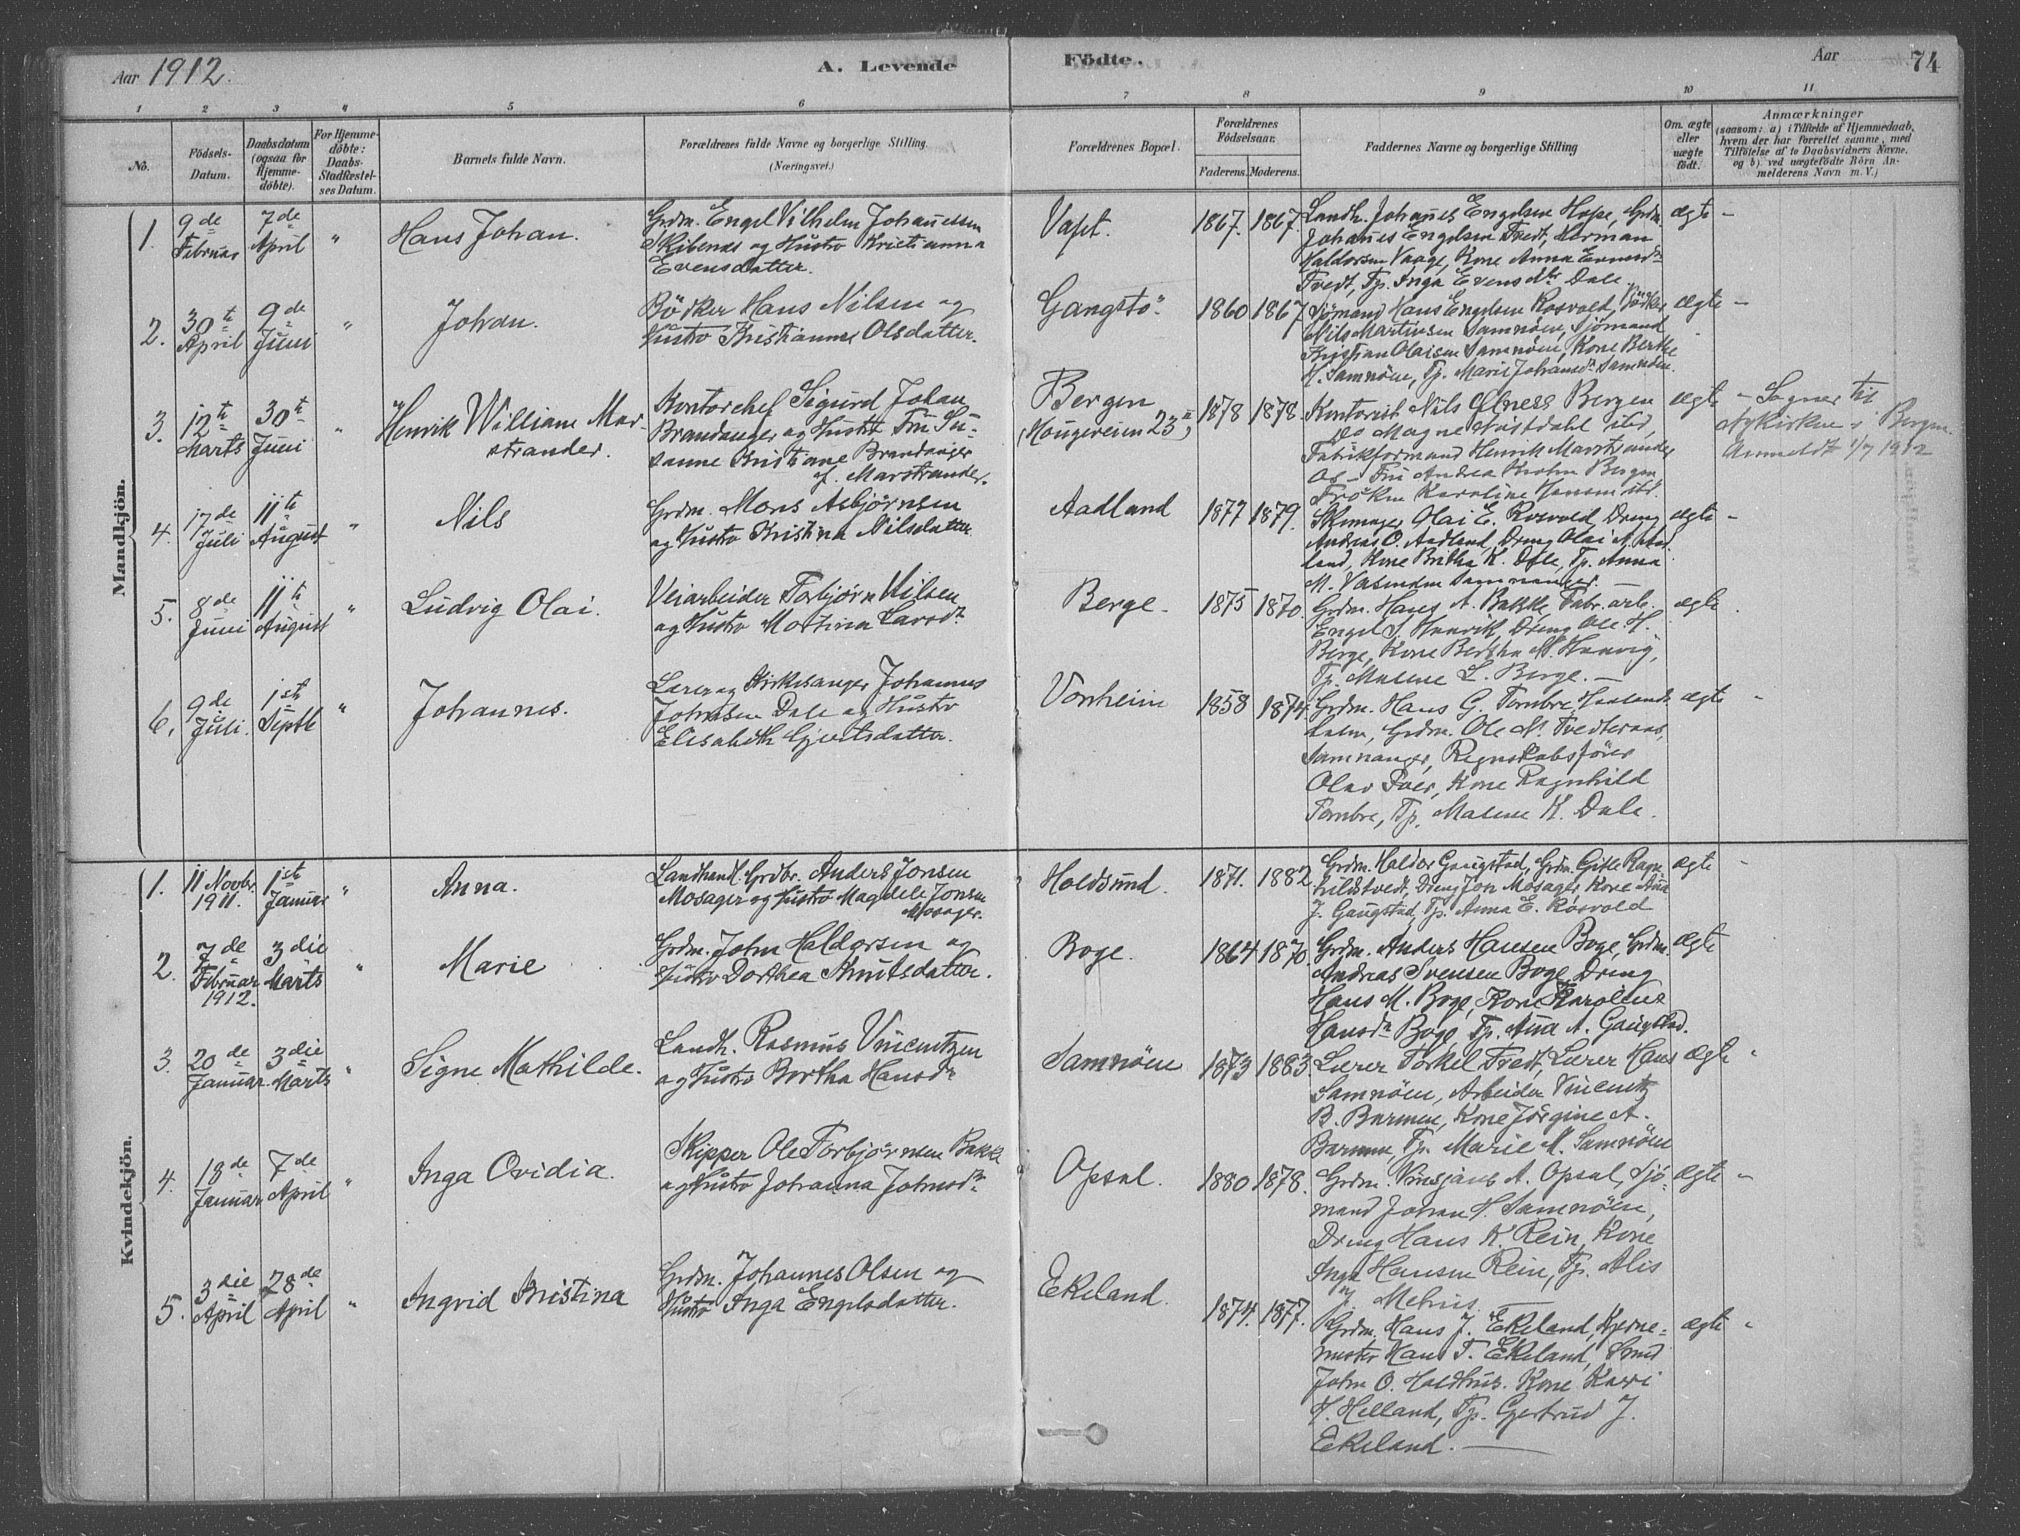 Aar 1912.
A. Levende
Födte.
Aar
74
1 2 3 4 5 6 7 8 9 10 11
No.
Födsels-
Datum.
Daabsdatum
(ogsaa for
Hjemme-
döbte).
For Hjemme-
döbte:
Daabs-
Stadfæstel-
ses Datum.
Barnets fulde Navn.
Forældrenes fulde Navne og borgerlige Stilling
(Næringsvei.)
Forældrenes Bopæl.
Forældrenes
Födselsaar.
Faderens. Moderens.
Faddernes Navne og borgerlige Stilling
Om ægte
eller
uægte
födt.
Anmærkninger
(saasom: a) i Tilfælde af Hjemmedaab,
hvem der har forrettet samme, med
Tilföielse af to Daabsvidners Navne,
og b) ved uægtefödte Börn An-
melderens Navn m. V.)
Mandkjön.
1.
9de
Februar
7de
April
"
Hans Johan.
Grdm. Engel Vilhelm Johannesen
Skibenes og Hustro Kristianna
Evensdatter.
1867. 1867.
Landh. Johannes Engelsen Hope, Grdm.
Johannes Engelsen Tvedt, Herman
Haldorsen Vaage, Kone Anna Evensdr
Tvedt, Tp. Inga Evensdtr Dale
ægte –
2.
30te
April
9de
Juni
"
Johan.
Bödker Hans Nilsen og
Hustro Kristianna Olsdatter.
Gangstö
1860 1867
Sjømand Hans Engelsen Rosvold, Bödker
Nils Martinsen Samnøen, Sjømand
Kristian Olaisen Samnøen, Kone Berthe
H. Samnøen, Tp. Marie Johansdr Samnøen.
ægte –
3.
12te
Marts
30te
Juni
"
Henrik William Mar-
strander.
Kontorchef Sigurd Johan
Brandanger og Hustro Fru Su-
sanne Kristiane Brandanger
f. Marstrander.
Bergen
(Haugeveien 23)
1878 1878.
Kontorist Nils Bergen
Do Magne Nøstdahl ibid,
Fabrikformand Henrik Marstrander
Os – Fru Andrea Krohn Bergen
Frøken Karoline Hansen ibd.
ægte
– Sogner til
Nykirken i Bergen
Anmeldt 1/7 1912
4.
17de
Juli
11te
August
"
Nils
Grdm. Mons Asbjørnsen
og Hustro Kristina Nilsdatter
Aadland
1877 1879.
Skomager Olai E. Rosvold, Dreng
Andreas O. Aadland, Dreng Olai A. Aad-
land, Kone Britha K. Dale, Tp. Anna
M. Vasenden Samnanger.
ægte –
5.
8de
Juni
11te
August
"
Ludvig Olai.
Veiarbeider Torbjørn Nilsen
og Hustro Martina Larsdr
Berge.
1875 1870.
Grdm. Hans A. Bakke, Fabr.arb.
Engel S. Henrik, Dreng Ole H.
Berge, Kone Bertha N. Hanvig,
Tp. Malene L. Berge. –
ægte
6.
9de
Juli.
1ste
Septb
"
Johannes.
Lærer og Kirkesanger Johannes
Johnsen Dale og Hustro
Elisabeth Gjertsdatter.
Vonheim
1858 1874.
Grdm. Hans G. Tombre, Haalands-
dalen, Grdm. Ole N. Tvedteraas,
Samnanger, Regnskabsfører
Olav Foer, Kone Ragnhild
Tombre, Tp. Malene K. Dale.
ægte
Kvindekjön.
1.
11 Novbr.
1911.
1ste
Januar
"
Anna.
Landhand. Grdbr. Anders Jonsen
Mosager og Hustro Magdele Jonsen
Mosager.
Holdsund.
1871. 1882
Grdm. Haldor Gaugstad, Grdm. Gitle Ragn-
hildstvedt, Dreng Jon Mosager, Kone Ana
J. Gaugstad, Tp. Anna E. Rosvold
ægte
2.
7de
Februar
1912.
3die
Marts
"
Marie
Grdm. John Haldorsen og
Hustro Dorthea Knutsdatter.
Boge.
1864 1870.
Grdm. Anders Hansen Boge, Grdm.
Andreas Svensen Boge, Dreng
Hans M. Boge, Kone Karoline
Hansdr Boge, Tp. Ana A. Gaugstad.
ægte
3.
20de
Januar
3die
Marts
"
Signe Mathilde.
Landh. Rasmus Vincentzen
og Hustro Bertha Hansdr
Samnøen
1873 1883.
Lærer Torkel Tvedt, Lærer Hans
Samnøen, Arbeider Vincentz
B. Barmen, Kone Jörgine A.
Barmen, Tp. Marie M. Samnøen
ægte
4.
18de
Januar
7de
April
"
Inga Ovidia.
Skipper Ole Torbjörnsen Bakke
og Hustro Johanna Johnsdr
Opsal.
1880 1878.
Grdm. Vinsjans A. Opsal, Sjö-
mand Johan H. Samnøen,
Dreng Hans K. Rein, Kone
Inga Hansen Rein, Tp. Alis
J. Melhus.
ægte –
5.
3die
April
28de
April
"
Ingrid Kristina
Grdm. Johannes Olsen og
Hustro Inga Engelsdatter.
Ekeland.
1874. 1877.
Grdm. Hans J. Ekeland, Hjerne-
mester Hans T. Ekeland, Smed
John O. Holdhus. Kone Kari
H. Helland, Tp. Gjertrud J.
Ekeland.
ægte